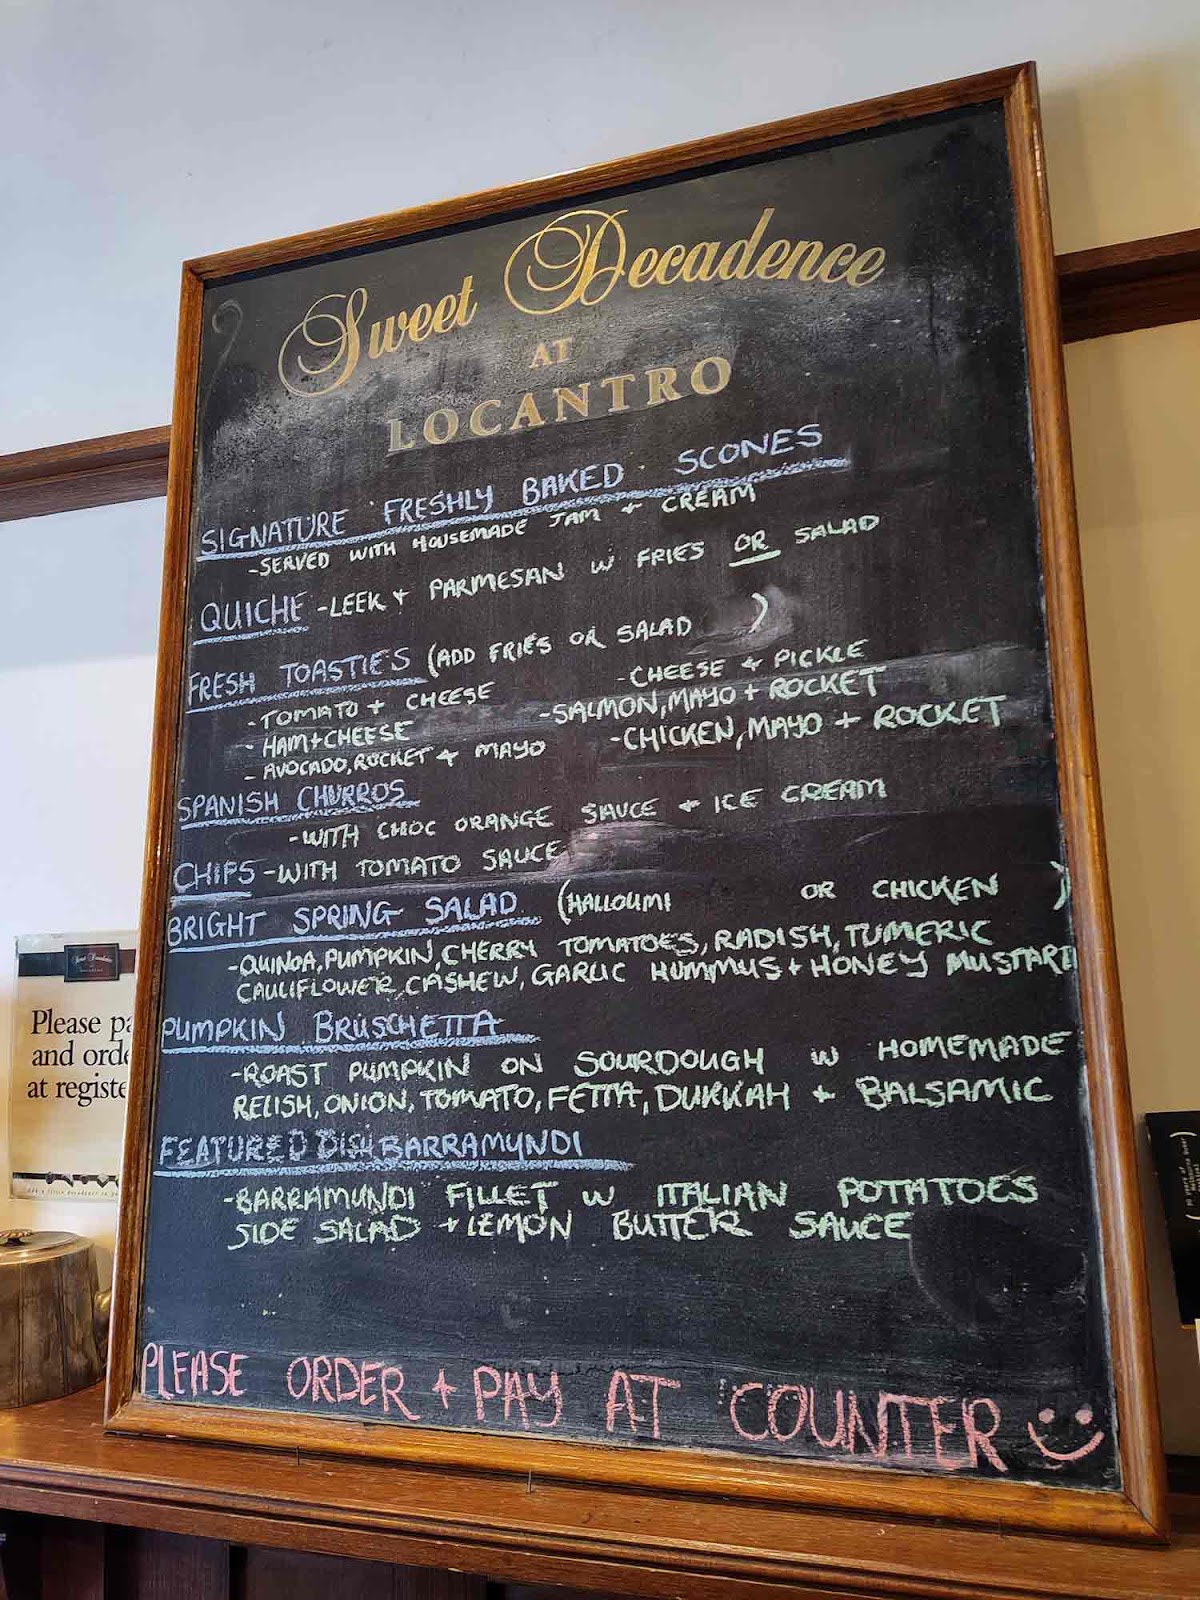 Sweet Decadence
AT
LOCANTRO
SIGNATURE FRESHLY BAKED SCONES
-SERVED WITH HOUSEMADE JAM + CREAM
QUICHE -LEEK + PARMESAN W FRIES OR SALAD
FRESH TOASTIES (ADD FRIES OR SALAD )
-TOMATO + CHEESE -CHEESE + PICKLE
- HAM+CHEESE -SALMON, MAYO + ROCKET
- AVOCADO, ROCKET + MAYO -CHICKEN, MAYO + ROCKET
SPANISH CHURROS
-WITH CHOC ORANGE SAUCE + ICE CREAM
CHIPS -WITH TOMATO SAUCE
BRIGHT SPRING SALAD (HALLOUMI OR CHICKEN )
-QUINOA, PUMPKIN, CHERRY TOMATOES, RADISH, TUMERIC
CAULIFLOWER, CASHEW, GARLIC HUMMUS + HONEY MUSTARD
PUMPKIN BRUSCHETTA
-ROAST PUMPKIN ON SOURDOUGH W HOMEMADE
RELISH, ONION, TOMATO, FETTA, DUKKAH + BALSAMIC
FEATURED DISH BARRAMUNDI
-BARRAMUNDI FILLET W ITALIAN POTATOES
SIDE SALAD + LEMON BUTTER SAUCE
PLEASE ORDER + PAY AT COUNTER
Please pa
and orde
at registe